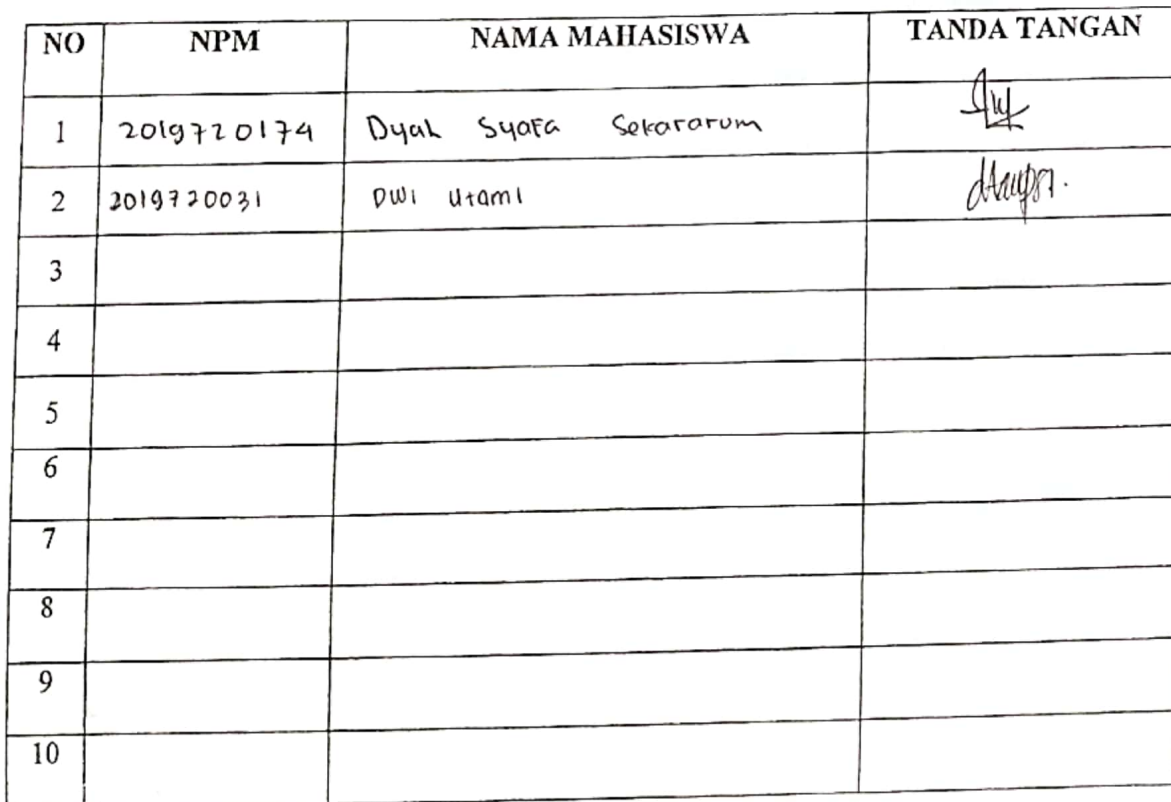 NO NPM NAMA MAHASISWA TANDA TANGAN
1 2019720174 Dyah Syafa Sekararum
2 2019720031 Dwi Utami
3
4
5
6
7
8
9
10